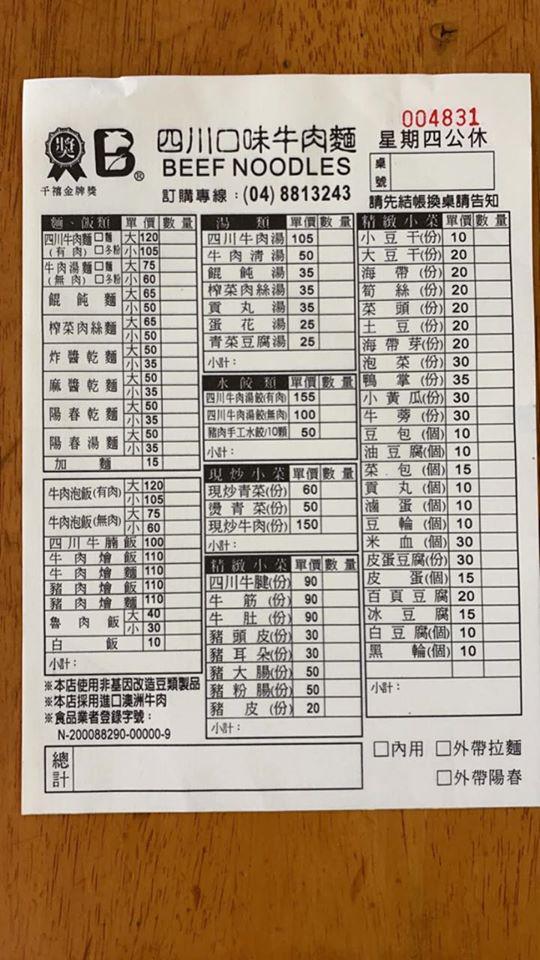 004831
四川口味牛肉麵
星期四公休
BEEF NOODLES
千禧金牌獎
訂購專線：(04) 8813243
桌號
請先結帳換桌請告知
麵、飯類 單價 數量
四川牛肉麵 □麵 大 120
(有肉) □冬粉 小 105
牛肉湯麵 □麵 大 75
(無肉) □冬粉 小 60
餛飩麵 大 65
小 50
榨菜肉絲麵 大 65
小 50
炸醬乾麵 大 50
小 35
麻醬乾麵 大 50
小 35
陽春乾麵 大 50
小 35
陽春湯麵 大 50
小 35
加麵 15
牛肉泡飯(有肉) 大 120
小 105
牛肉泡飯(無肉) 大 75
小 60
四川牛腩飯 100
牛肉燴飯 110
牛肉燴麵 110
豬肉燴飯 110
豬肉燴麵 110
魯肉飯 大 40
小 30
白飯 10
小計：
※本店使用非基因改造豆類製品
※本店採用進口澳洲牛肉
※食品業者登錄字號：
N-200088290-00000-9
湯類 單價 數量
四川牛肉湯 105
牛肉清湯 50
餛飩湯 35
榨菜肉絲湯 35
貢丸湯 35
蛋花湯 25
青菜豆腐湯 25
小計：
水餃類 單價 數量
四川牛肉湯餃(有肉) 155
四川牛肉湯餃(無肉) 100
豬肉手工水餃/10顆 50
小計：
現炒小菜 單價 數量
現炒青菜(份) 60
燙青菜(份) 50
現炒牛肉(份) 150
小計：
精緻小菜 單價 數量
四川牛腱(份) 90
牛筋(份) 90
牛肚(份) 90
豬頭皮(份) 30
豬耳朵(份) 30
豬大腸(份) 50
豬粉腸(份) 50
豬皮(份) 20
小計：
精緻小菜 單價 數量
小豆干(份) 10
大豆干(份) 20
海帶(份) 20
筍絲(份) 20
菜頭(份) 20
土豆(份) 20
海帶芽(份) 20
泡菜(份) 30
鴨掌(份) 35
小黃瓜(份) 30
牛蒡(份) 30
豆包(個) 10
油豆腐(個) 10
菜包(個) 15
貢丸(個) 10
滷蛋(個) 10
豆輪(個) 10
米血(個) 30
皮蛋豆腐(份) 30
皮蛋(個) 15
百頁豆腐 20
冰豆腐 15
白豆腐(個) 10
黑輪(個) 10
小計：
總計
□內用 □外帶拉麵
□外帶陽春